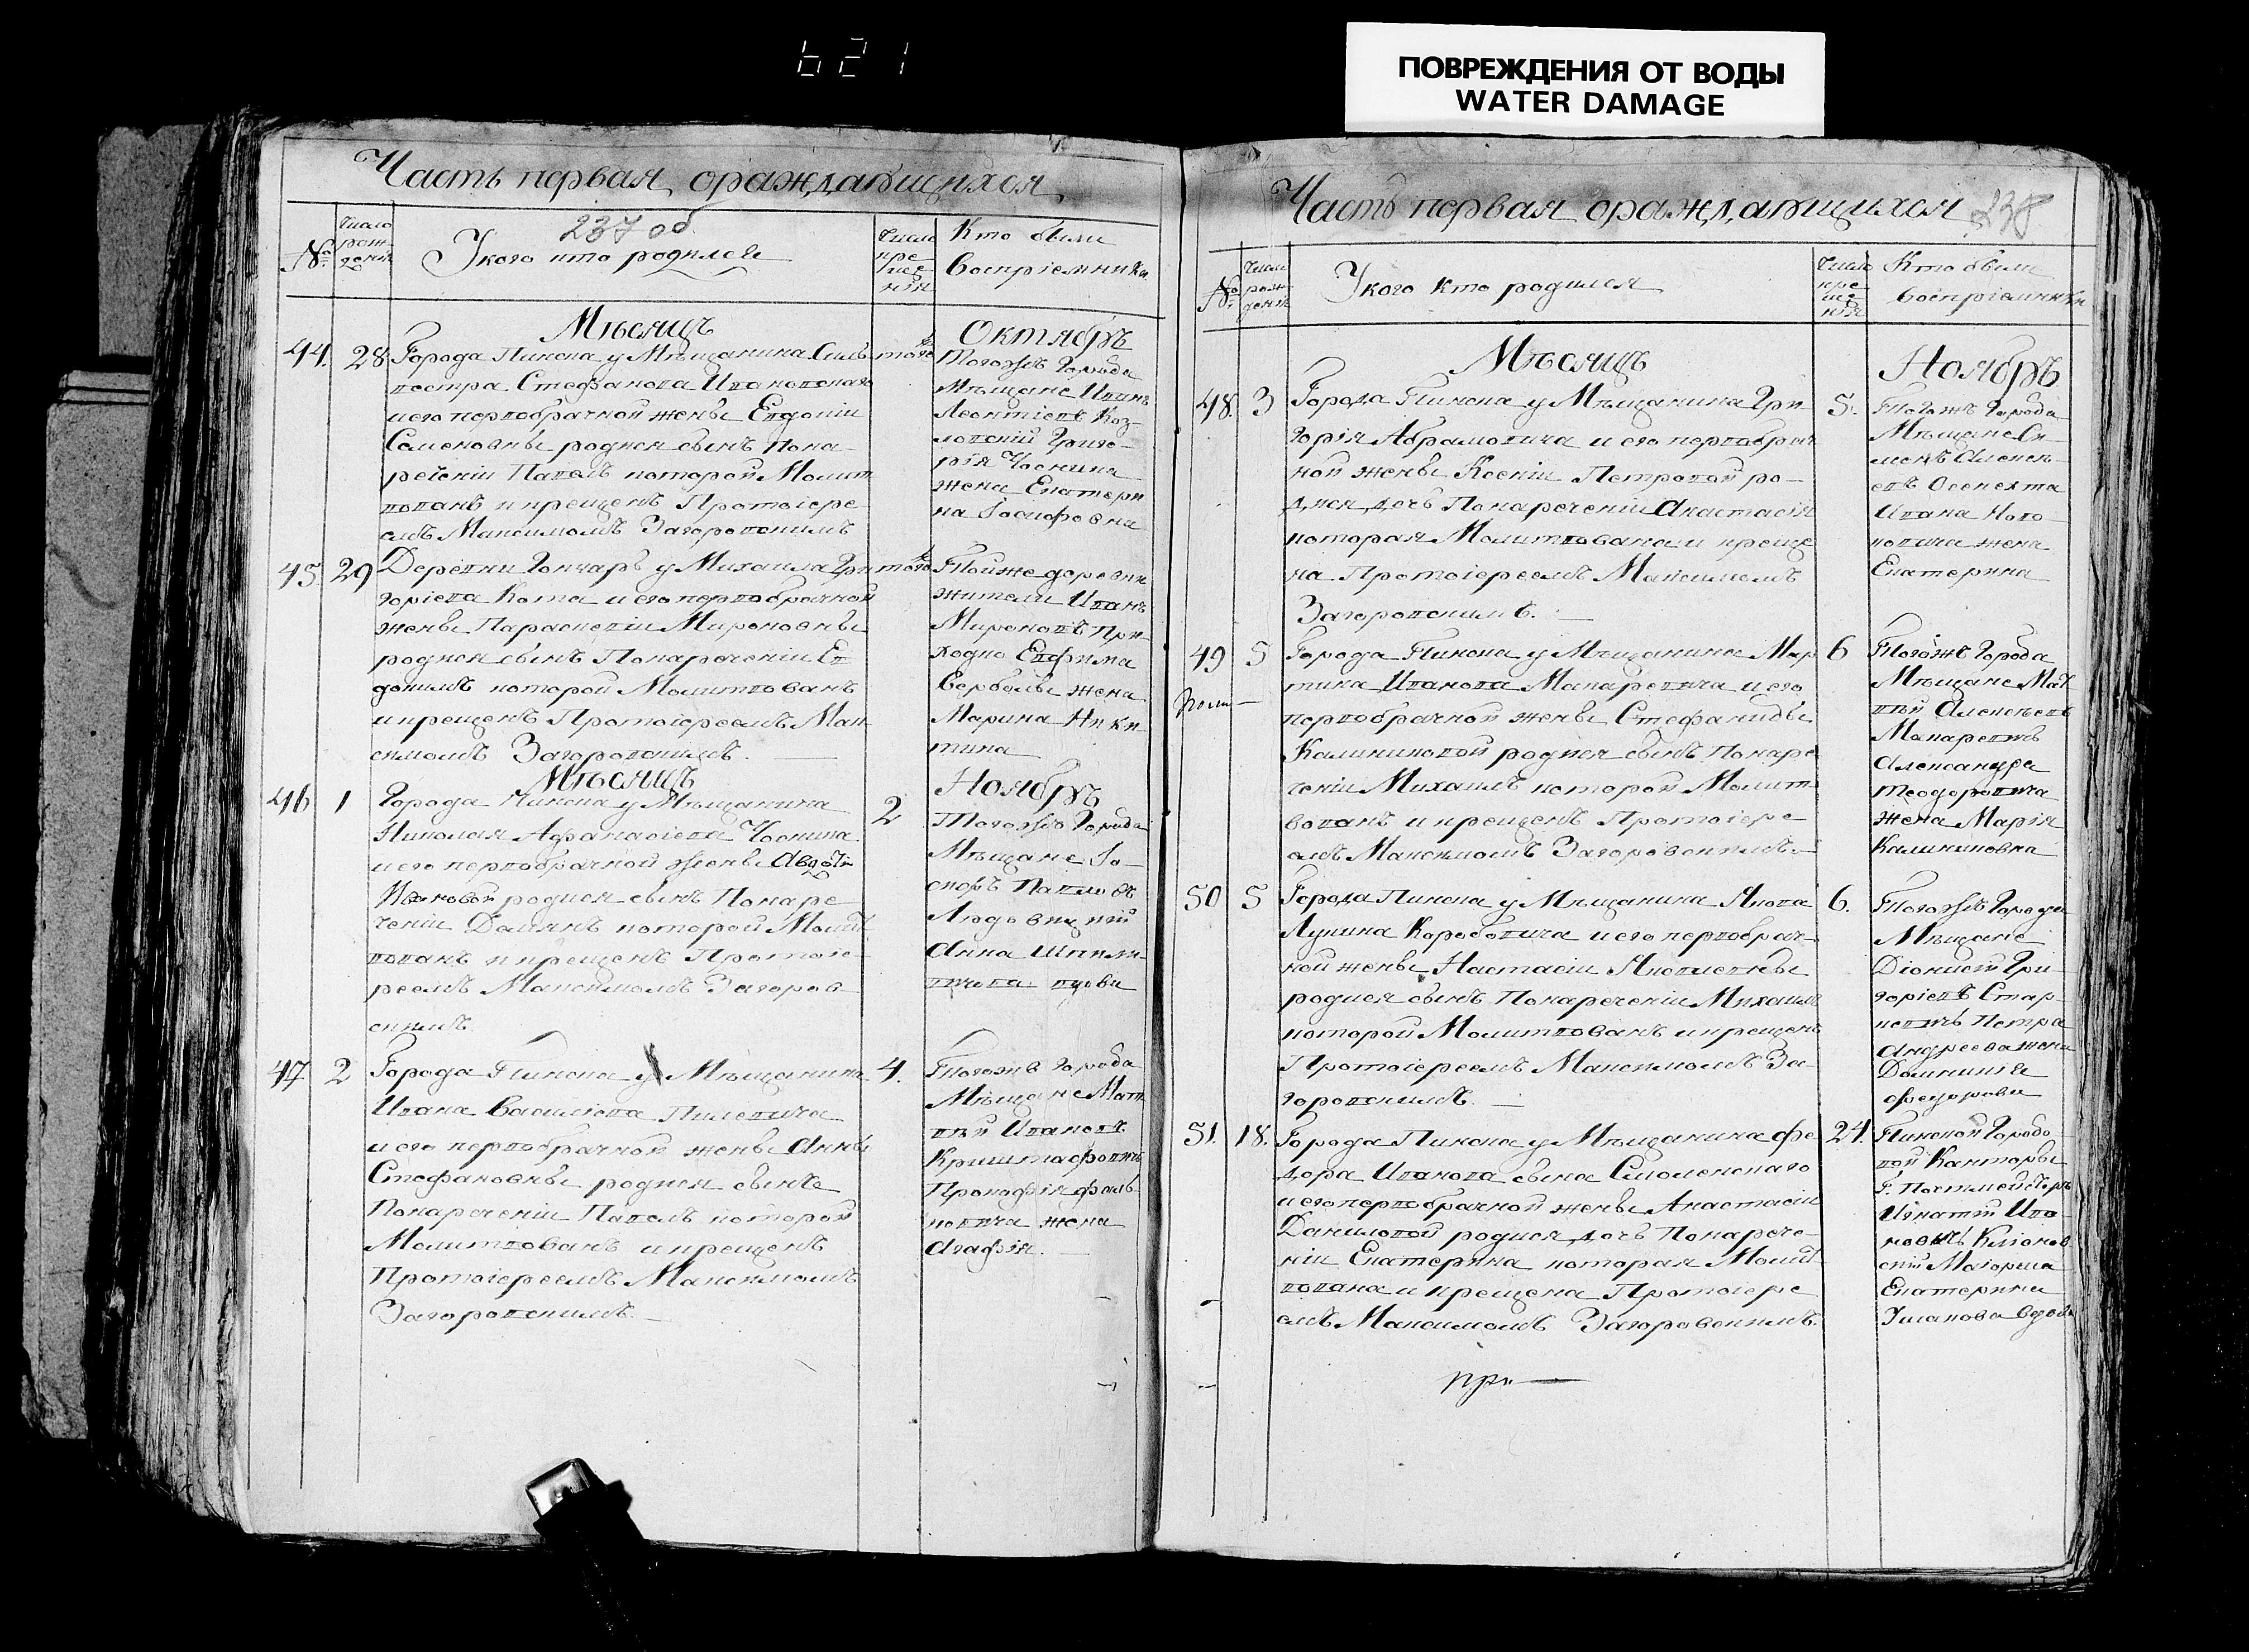 621
ПОВРЕЖДЕНИЯ ОТ ВОДЫ
WATER DAMAGE
Часть первая ораждающихся
237 об
№
Число рож-дения
У кого кто родился
Число кре-ще-нія
Кто были воспріемники
Мѣсяцъ Октябрь
44. 28
Города Пинска у Мѣщанина Силь-
вестра Стефанова Ивановскаго
и его первобрачной жены Евдокіи
Семеновны родися сынъ Пона-
реченіи Павелъ которой Молит
вованъ и крещенъ Протоіере
емъ Максимомъ Загоровскимъ
того
Тогожъ Города
Мѣщане Иванъ
Леонтіевъ Коз-
ловскій Григо-
рія Чосника
жена Екатери
на Іосифовна
45. 29
Деревни Гончаръ у Михаила Гри
горіева Кота и его первобрачной
жены Параскевіи Мироновны
родися сынъ Понареченіи Ев
докимъ которой Молитвованъ
и крещенъ Протоіереемъ Мак-
симомъ Загоровскимъ.
того
Тойже деревни
жители Иванъ
Мироновъ При-
ходко Евфима
Верболы жена
Марина Ники
тина
Мѣсяцъ Ноябрь
46 1
Города Пинска у Мѣщанина
Николая Афанасіева Чоснока
и его первобрачной жены Авдотіи
Ивановой родися сынъ Понаре
ченіи Домянъ которой Молит
вованъ и крещенъ Протоіе-
реемъ Максимомъ Загоров-
скимъ
2
Тогожъ Города
Мѣщане Іо-
сифъ Павловъ
Людовицкій
Анна
вдова
47 2
Города Пинска у Мѣщанина
Ивана Василіева Пилевича
и его первобрачной жены Анны
Стефановны родися сынъ
Понареченіи Павелъ которой
Молитвованъ и крещенъ
Протоіереемъ Максимомъ
Загоровскимъ.
4.
Тогожъ Города
Мѣщане Мат
вѣй Ивановъ
Криштафовичъ
Прокофія Фаль-
ковича жена
Агафія.
Часть первая ораждающихся
238
№
Число рож-дения
У кого кто родился
Число кре-ще-нія
Кто были воспріемники
Мѣсяцъ Ноябрь
48. 3
Города Пинска у Мѣщанина Гри-
горія Абрамовича и его первобрач
ной жены Ксеніи Петровой ро-
дися дочь Понареченіи Анастасія
которая Молитвована и креще
на Протоіереемъ Максимомъ
Загоровскимъ.
5.
Тогожъ Города
Мѣщане Се-
менъ Алексѣ-
евъ
Ивана Ново-
жена
Екатерина
49 5
Города Пинска у Мѣщанина Мар
тина Иванова Макаревича и его
первобрачной жены Стефаниды
Калиниковой родися сынъ Понаре
ченіи Михаилъ которой Молит-
вованъ и крещенъ Протоіере
емъ Максимомъ Загоровскимъ.
6
Тогожъ Города
Мѣщане Мат
вѣй Алексѣевъ
Макаревичъ
Александра
Теодоровича
жена Марія
Калиниковна
50 5
Города Пинска у Мѣщанина Якова
Лукина Коробовича и его первобрач-
ной жены Настасіи Яковлевны
родися сынъ Понареченіи Михаилъ
которой Молитвованъ и крещенъ
Протоіереемъ Максимомъ За-
горовскимъ.
6.
Тогожъ Города
Мѣщане
Діонисій Гри-
горіевъ Стар-
кевичъ Петра
Андреева жена
Домникія
Федорова
51. 18.
Города Пинска у Мѣщанина Фе
дора Иванова сына Смоленскаго
и его первобрачной жены Анастасіи
Даниловой родися дочь Понарече-
ніи Екатерина которая Молит-
вована и крещена Протоіере
емъ Максимомъ Загоровскимъ.
24.
Пинской Городо-
вой Канторы
Г. Постмейстеръ
Игнатій Ива-
новичъ
Маіорша
Екатерина
Ушакова вдова